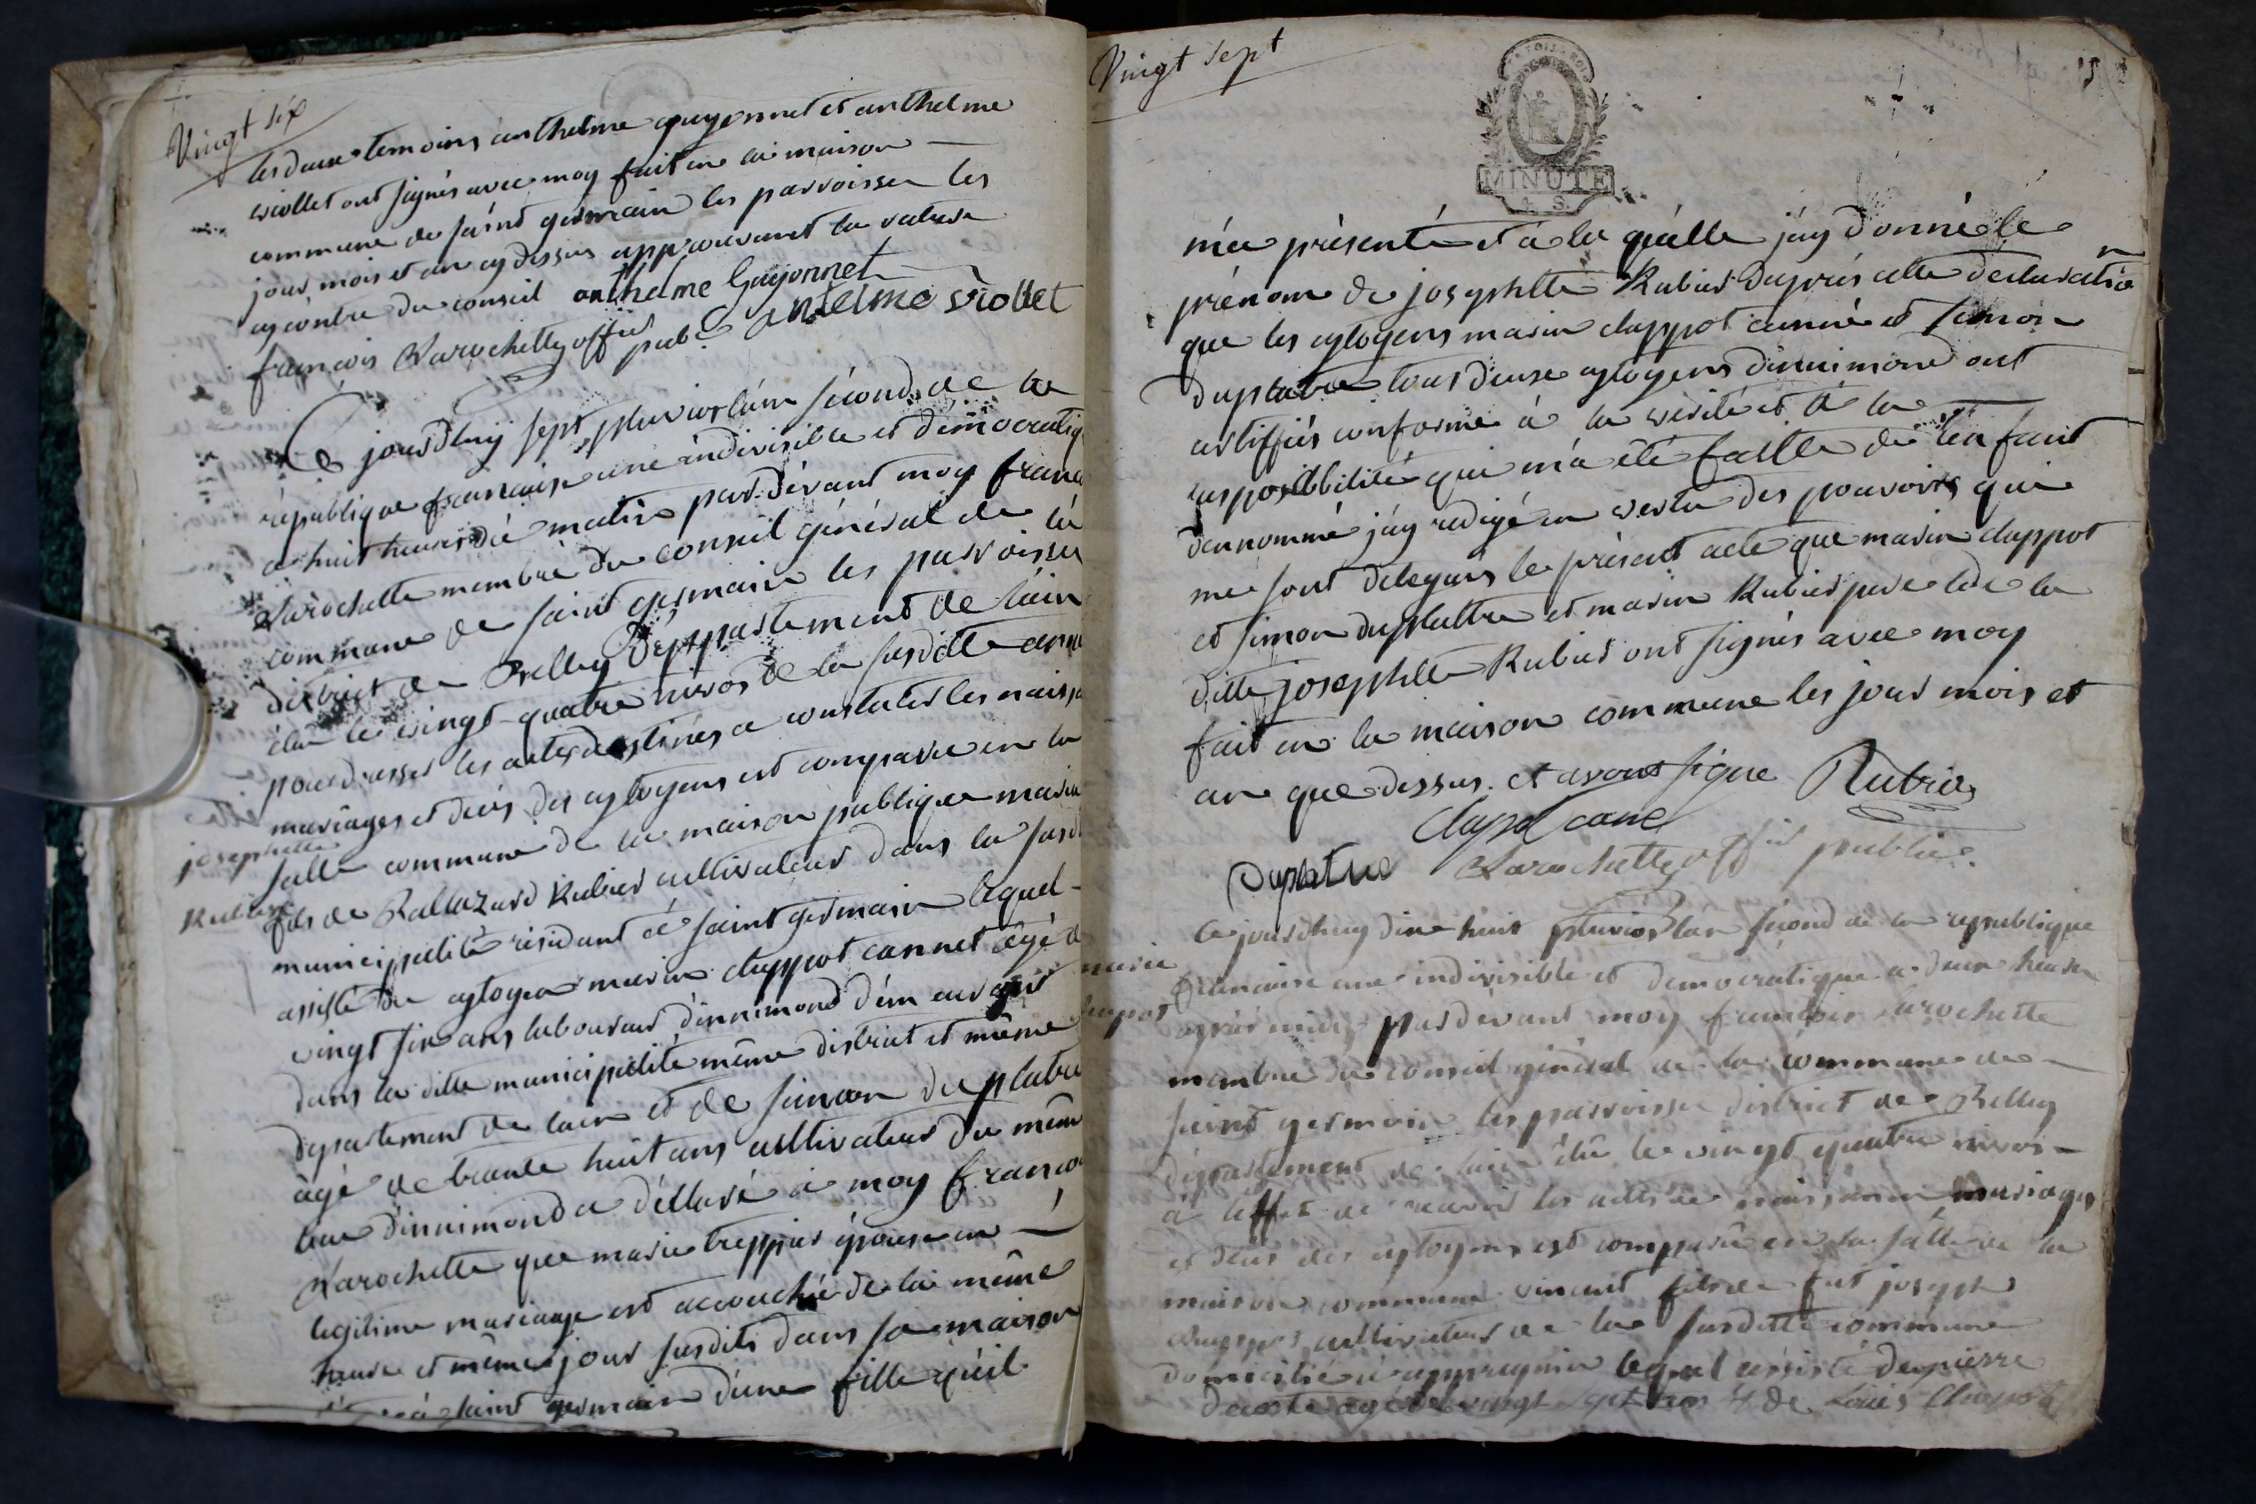 Vingt six
les deux temoins anthelme guyonnet et anthelme
viollet ont signés avec moy fait en la maison
commune de saint germain les parroisses les
jour mois et an cydessus approuvant la rature
cycontre du conseil anthelme Guyonnet
françois Larochette offier pub. antelme viollet
Ce jourdhuy sept pluvios lan sécond de la
république françaisse une indivisible et démocratiq
a huit heures dé matin par dévant moy franç
Larochette membre du conseil général de la
commune de saint germain les parroisses
district de Belley Déppartement de lain
élu le vingt quatre nivos de la susditte anné
pour dresser les actes destinés a constater les naissa
mariages et décés des cytoyens est comparu en la
salle commune de la maison publique marin
josephtte
Rubier
fils de Baltazard Rubier cultivateur dans la susd
municipalité résidant à saint germain lequel
assisté du cytoyen marin clappot cannet âgé de
vingt six ans laboureur dinnimond démeurant
dans la ditte municipalité même district et même
département de lain et de simon duplatre
âgé de trante huit ans cultivateur du même
lieu dinnimond a décllaré à moy françoi
Larochette que marie treppier épouse en
legitime mariage est accouchée de la même
heure et même jour susdits dans sa maison
à saint germain dune fille quil
Vingt sept
MINUTE
4. S.
m'a présenté et à la quélle jáy donné le
prénom de josephtte Rubier Daprés cette declaration
que les cytoyens marin clappot canné et simon
Duplatre tous deux cytoyens dinnimond ont
certiffiés conforme à la vérité et à la
qui m'à été faitte de lenfant
dennommé jáy redigé en vertu des pouvoirs qui
me sont délégués le présent acte que marin clappot
et simon duplattre et marin Rubier pere de la
ditte josephtte Rubier ont signés avec moy
fait en la maison commune les jour mois et
an que dessus. et avont signe Rubier
Clapot cane
Duplatre Larochette offier public.
Ce jourdhuy dixe huit pluvios lan sécond de la republique
marie
françaisse une indivisible et democratique a deux heures
après midy pardévant moy françois Larochette
membre du conseil général de la commune de
saint germain les parroisses district de Belley
département de lain élu le vingt quatre nivos
à leffet de recevoir les actes de naissances mariages
et décés des cytoyens est comparu en la salle de la
maison commune vincent fils de fut joseph
cultivateur de la susditte commune
domicilié à appregnin lequel assisté de pierre
agé de vingt sept ans & de Louis